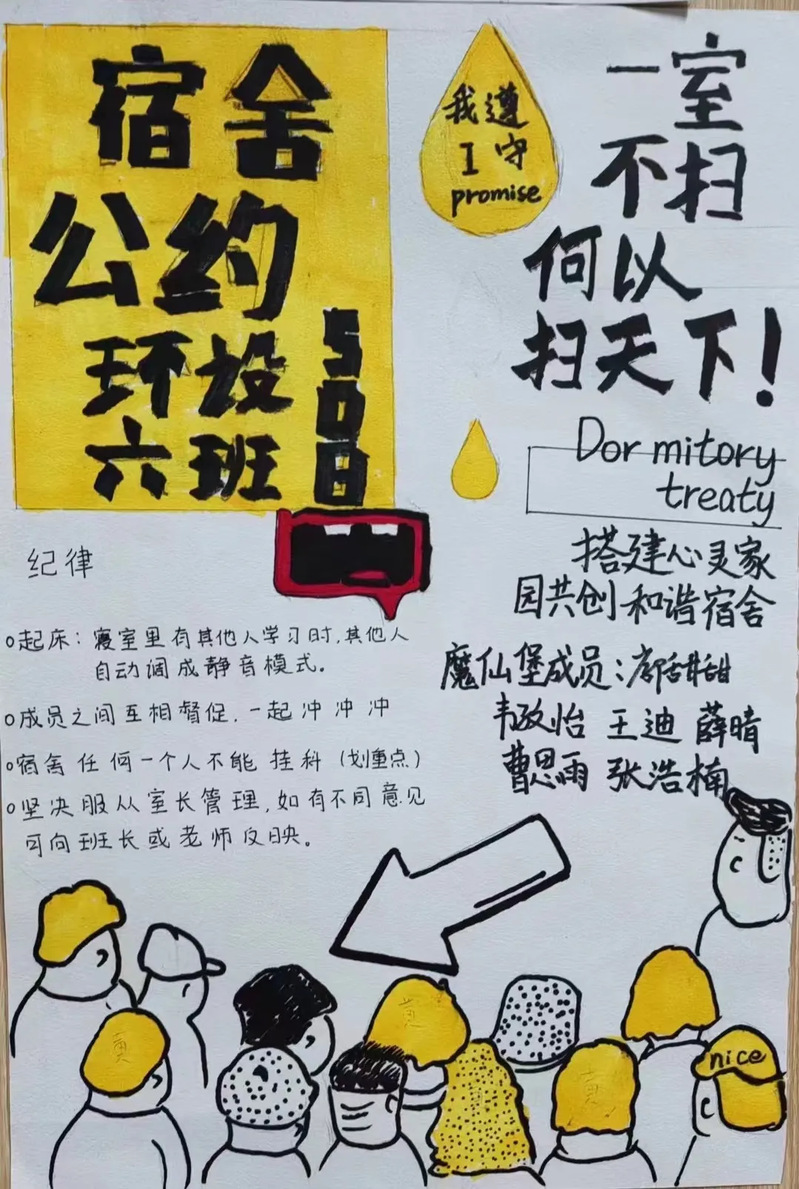 宿舍
公约
环设
六班
508
我遵
I守
promise
一室
不扫
何以
扫天下!
Dormitory
treaty
搭建心灵家
园共创和谐宿舍
魔仙堡成员:甜甜
韦政怡 王迪 薛晴
曹思雨 张浩楠
纪律
起床:寝室里有其他人学习时,其他人
自动调成静音模式。
成员之间互相督促,一起冲冲冲
宿舍任何一个人不能挂科(划重点)
坚决服从室长管理,如有不同意见
可向班长或老师反映。
黄
黄
黄
nice